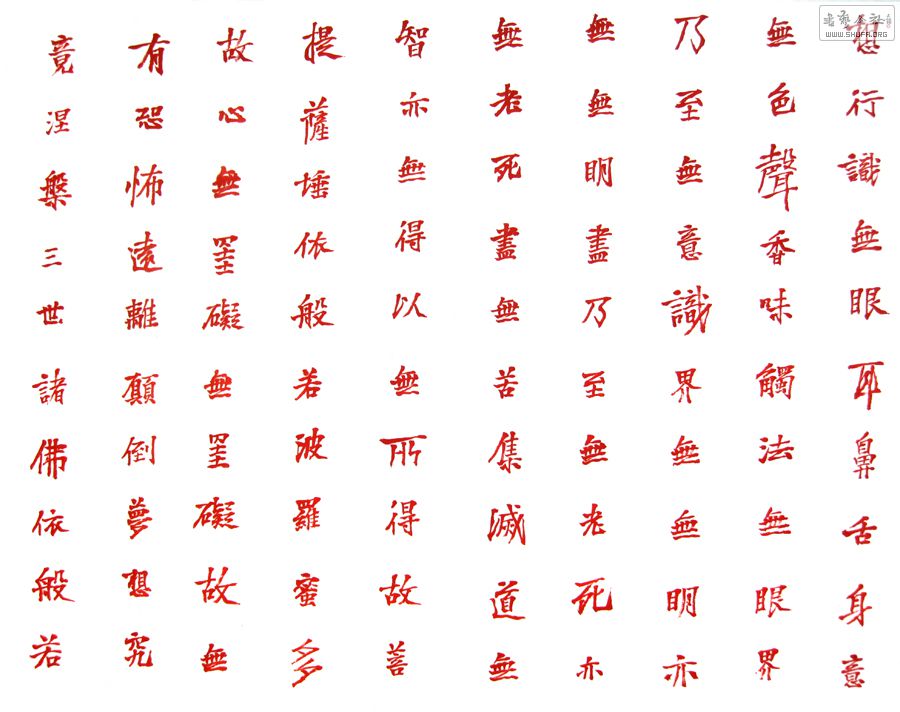 想行識無眼耳鼻舌身意
無色聲香味觸法無眼界
乃至無意識界無無明亦
無無明盡乃至無老死亦
無老死盡無苦集滅道無
智亦無得以無所得故菩
提薩埵依般若波羅蜜多
故心無罣礙無罣礙故無
有恐怖遠離顛倒夢想究
竟涅槃三世諸佛依般若
WWW.SHUFA.ORG